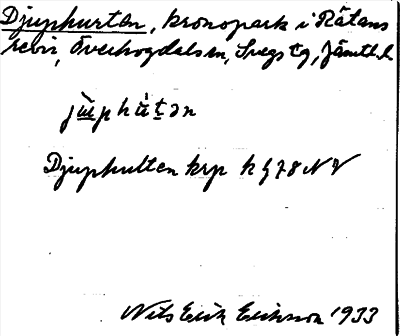 Djuphurten, kronopark i Rätans
revir, Överhogdals sn, Svegs tg, Jämtl. l.
jɯ̀pħ̀ɯ̀tən
Djuphulten krp k hg 78 NV
Nils Erik Eriksson 1933